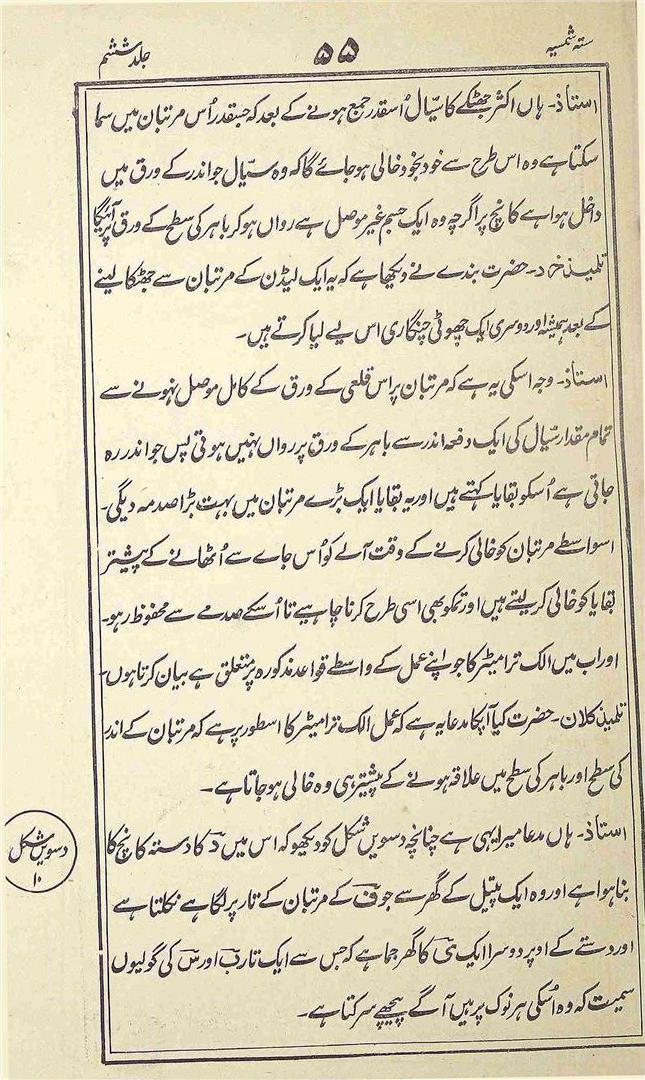 ستہ شمسیہ
۵۵
جلد ششم
استاذ۔ ہاں اکثر جھٹکے کا سیّال اُسقدر جمع ہونے کے بعد کہ جسقدر اُس مرتبان میں سما
سکتا ہے وہ اس طرح سے خود بخود خالی ہوجائے گا کہ وہ سیّال جو اندر کے ورق میں
داخل ہوا ہے کانچ پر اگرچہ وہ ایک جسم غیر موصل ہے رواں ہوکر باہر کی سطح کے ورق پر آئیگا
تلمیذ خرد۔ حضرت بندے نے دیکھا ہے کہ یہ ایک لیڈن کے مرتبان سے جھٹکا لینے
کے بعد ہمیشہ اور دوسری ایک چھوٹی چنگاری اس لیے لیا کرتے ہیں۔
استاذ۔ وجہ اسکی یہ ہے کہ مرتبان پر اس قلعی کے ورق کے کامل موصل نہونے سے
تمام مقدار سیّال کی ایک دفعہ اندر سے باہر کے ورق پر رواں نہیں ہوتی پس جو اندر رہ
جاتی ہے اُسکو بقایا کہتے ہیں اور یہ بقایا ایک بڑے مرتبان میں بہت بڑا صدمہ دیگی۔
اسواسطے مرتبان کو خالی کرنے کے وقت آلے کو اُس جاے سے اُٹھانے کے پیشتر
بقایا کو خالی کرلیتے ہیں اور تمکو بھی اسی طرح کرنا چاہیے تا اُسکے صدمے سے محفوظ رہو۔
اور اب میں الک ترامیٹر کا جو اپنے عمل کے واسطے قواعد مذکورہ پر متعلق ہے بیان کرتا ہوں۔
تلمیذ کلان۔ حضرت کیا آپکا مدعا یہ ہے کہ عمل الک ترامیٹر کا اسطور پر ہے کہ مرتبان کے اندر
کی سطح اور باہر کی سطح میں علاقہ ہونے کے پیشتر ہی وہ خالی ہوجاتا ہے۔
استاذ۔ ہاں مدعا میرا یہی ہے چنانچہ دسویں شکل کو دیکھو کہ اس میں دؔ کا دستہ کانچ کا
بنا ہوا ہے اور وہ ایک پیتل کے گھر سے جو فؔ کے مرتبان کے تار پر لگا ہے نکلتا ہے
اور دستے کے اوپر دوسرا ایک یؔ کا گھر جما ہے کہ جس سے ایک تار بؔ اور سؔ کی گولیوں
سمیت کہ وہ اُسکی ہر نوک پر ہیں آگے پیچھے سرکتا ہے۔
دسویں شکل
۱۰